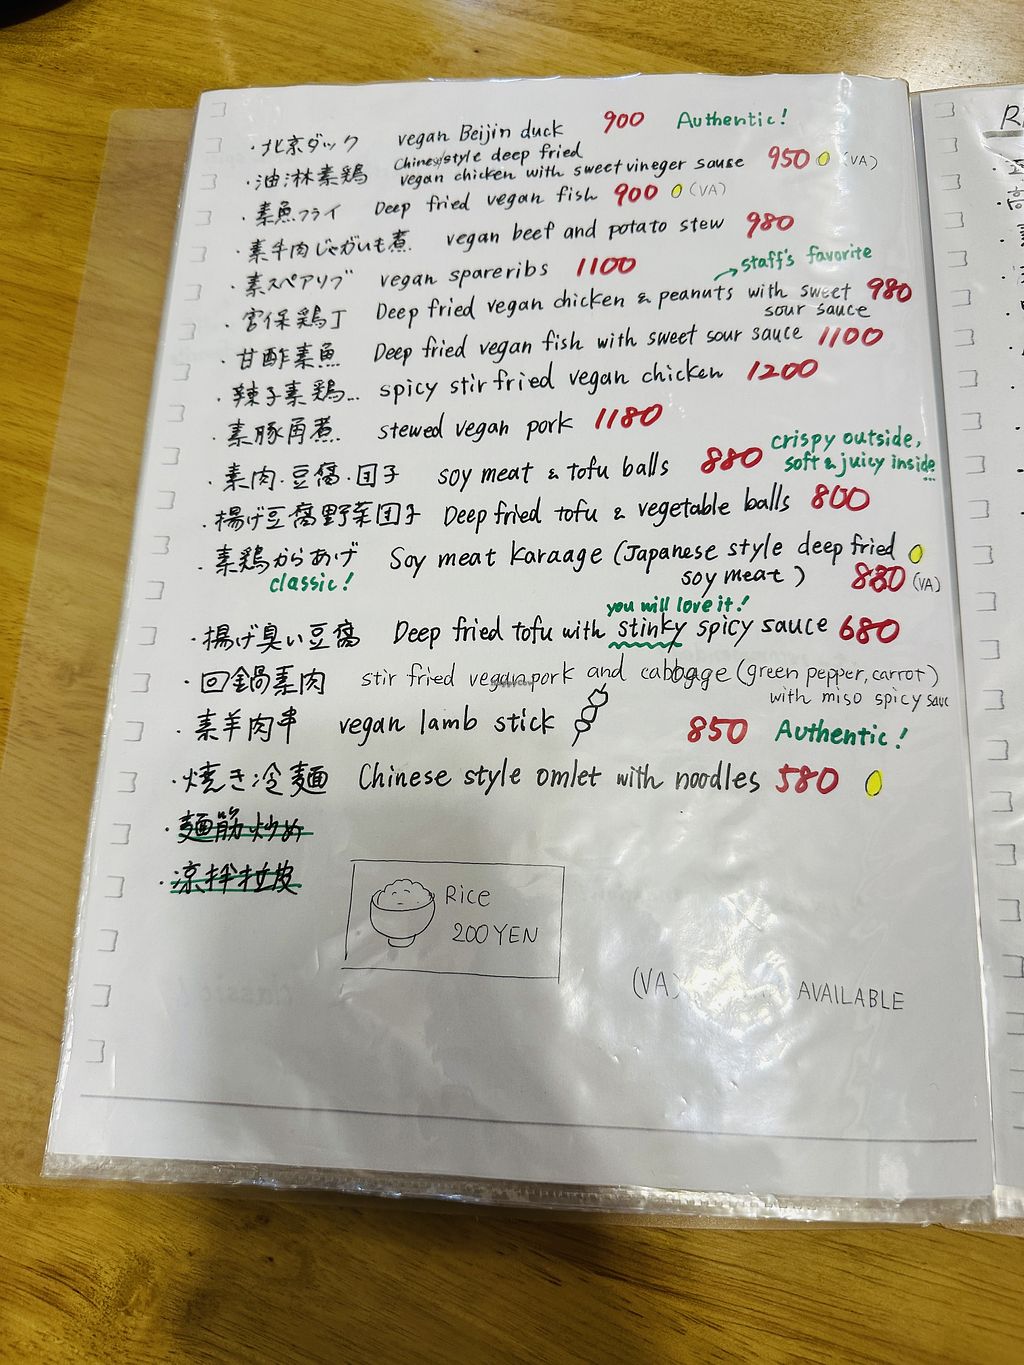 ・北京ダック vegan Beijin duck 900 Authentic!
・油淋素鶏 Chinese style deep fried
vegan chicken with sweet vineger sause 950 (VA)
・素魚フライ Deep fried vegan fish 900 (VA)
・素牛肉じゃがいも煮 vegan beef and potato stew 980
・素スペアリブ vegan spareribs 1100
staff's favorite
・宮保鶏丁 Deep fried vegan chicken & peanuts with sweet 980
sour sauce
・甘酢素魚 Deep fried vegan fish with sweet sour sauce 1100
・辣子素鶏... spicy stir fried vegan chicken 1200
・素豚角煮 stewed vegan pork 1180
・素肉・豆腐・団子 soy meat & tofu balls 880 crispy outside,
soft & juicy inside
・揚げ豆腐野菜団子 Deep fried tofu & vegetable balls 800
・素鶏からあげ Soy meat karaage (Japanese style deep fried
classic! soy meat) 880 (VA)
you will love it!
・揚げ臭い豆腐 Deep fried tofu with stinky spicy sauce 680
・回鍋素肉 stir fried vegan pork and cabbage (green pepper, carrot)
with miso spicy sauc
・素羊肉串 vegan lamb stick 850 Authentic!
・焼き冷麺 Chinese style omlet with noodles 580
・麺筋炒め
・涼拌拉皮
Rice
200 YEN
(VA) AVAILABLE